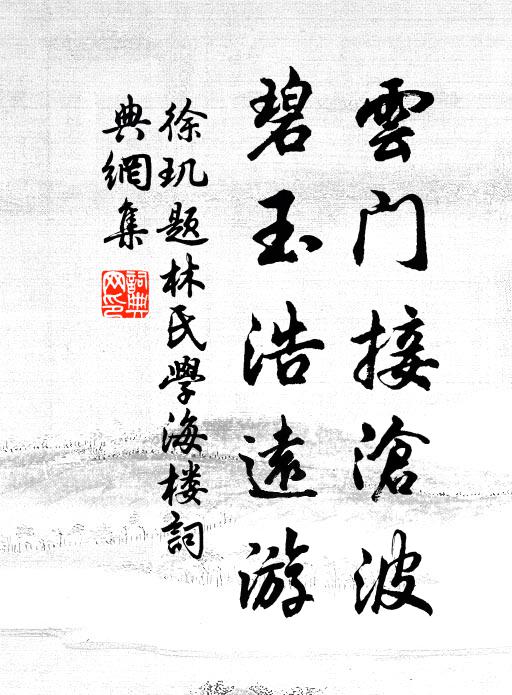 雲门接滄波
碧玉浩遠游
徐玑题林氏學海楼詞
典網集
詞典网印